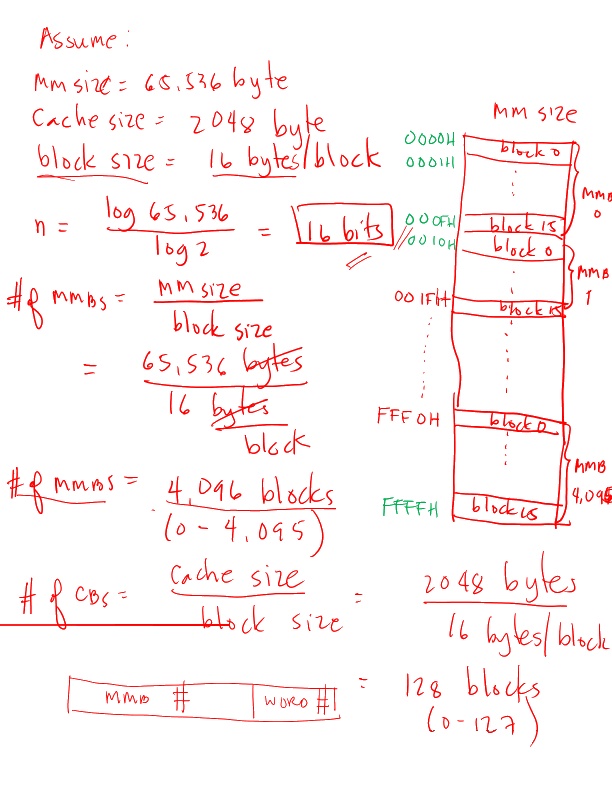 Assume:
MM size = 65,536 byte
Cache size = 2048 byte
block size = 16 bytes/block
n = log 65,536 / log 2 = 16 bits
# of MMBs = MM size / block size
= 65,536 bytes / 16 bytes/block
# of MMBs = 4,096 blocks
(0 - 4,095)
# of CBs = Cache size / block size = 2048 bytes / 16 bytes/block
= 128 blocks
(0-127)
MMB # WORD #
MM SIZE
0000H block 0
0001H
MMB 0
000FH block 15
0010H block 0
MMB 1
001FH block 15
FFF0H block 0
MMB 4,095
FFFFH block 15